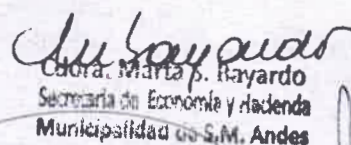 Cdora. Marta S. Bayardo
Secretaria de Economía y Hacienda
Municipalidad de S.M. Andes